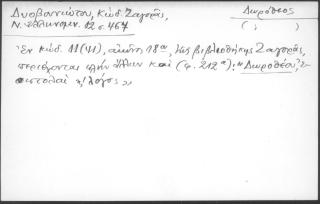 Δυοβουνιώτου, Κώδ. Ζαγορᾶς,
Ν. Ἑλληνομν. 12 σ. 467
Δωρόθεος
( , )
Ἐν κώδ. 11(41), αἰῶνος 18ᵒᵘ, τῆς βιβλιοθήκης Ζαγορᾶς,
περιέχονται πλὴν ἄλλων καὶ (φ. 212ᵅ): "Δωροθέου, Ἐ-
πιστολαὶ κ/ λόγοι"